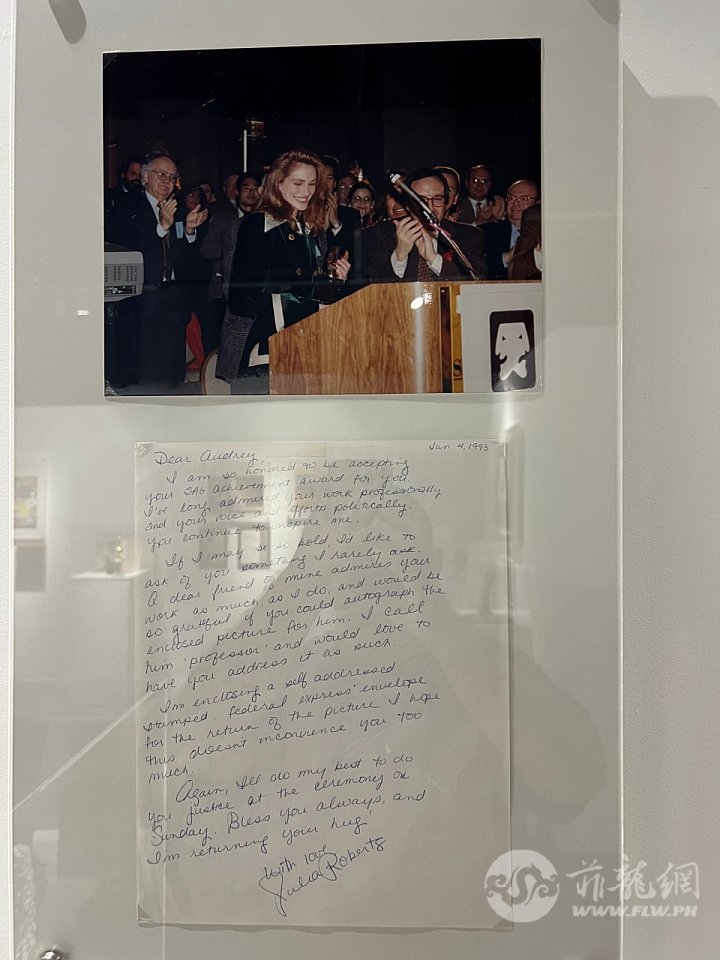 Dear Audrey,
Jan 4, 1993
I am so honored to be accepting
your SAG achievement award for you.
I've long admired your work professionally
and your voice and efforts politically.
you continue to inspire me.
If I may be so bold, I'd like to
ask of you something I rarely ask.
A dear friend of mine admires your
work as much as I do, and would be
so grateful if you could autograph the
enclosed picture for him. I call
him 'professor' and would love to
have you address it as such.
I'm enclosing a self addressed
stamped, 'federal express' envelope
for the return of the picture I hope
this doesn't inconvience you too
much.
Again, I'll do my best to do
you justice at the ceremony on
Sunday. Bless you always, and
I'm returning your hug!
With love
Julia Roberts
菲龍網
WWW.FLW.PH